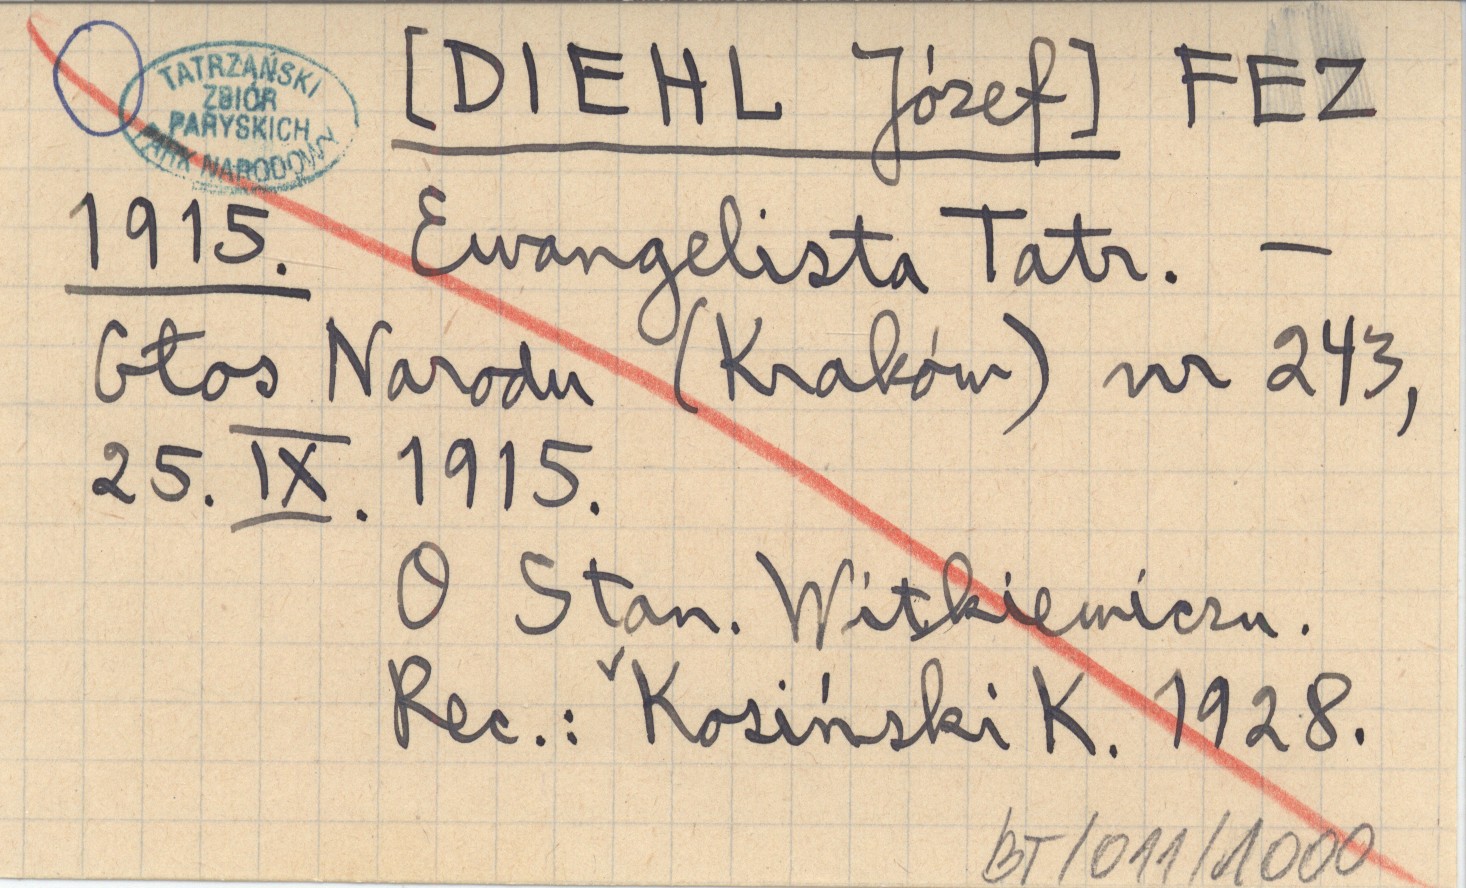 TATRZAŃSKI
ZBIÓR
PARYSKICH
PARK NARODOWY
[DIEHL Józef] FEZ
1915. Ewangelista Tatr. —
Głos Narodu (Kraków) nr 243,
25. IX. 1915.
O Stan. Witkiewiczu.
Rec.: Kosiński K. 1928.
BT/011/1000